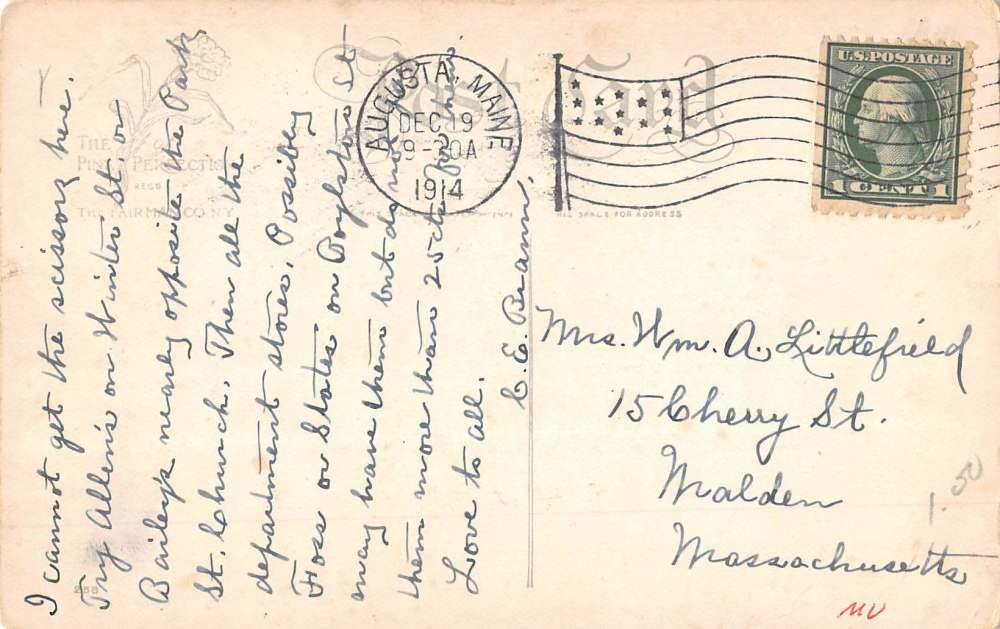 Post Card
THE
PINK PERFECTION
REG'D
THE FAIRMAN CO NY
AUGUSTA, MAINE
DEC 19
9-30A
1914
U.S. POSTAGE
1 CENT 1
I cannot get the scissors here.
Try Allen's on Winter St. or
Bailey's nearly opposite the Park
St. Church. Then all the
department stores. Possibly
Foss or States on Boylston St
may have them but do not pay
them more than 25cts for them.
Love to all.
C. E. Beann.
ALL SPACE FOR ADDRESS
Mrs. Wm. A. Littlefield
15 Cherry St.
Malden
Massachusetts
1.50
MV
258